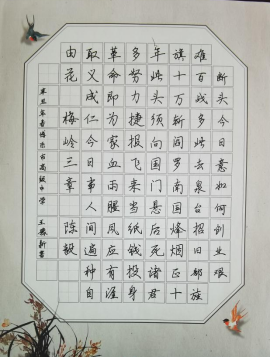 断头今日意如何创业艰
难百战多此去泉台招旧部旌
旗十万斩阎罗南国烽烟正十
年此头须向国门悬后死诸君
多努力捷报飞来当纸钱投身
革命即为家血雨腥风应有涯
取义成仁今日事人间遍种自
由花
梅岭三章
陈毅
高级中学